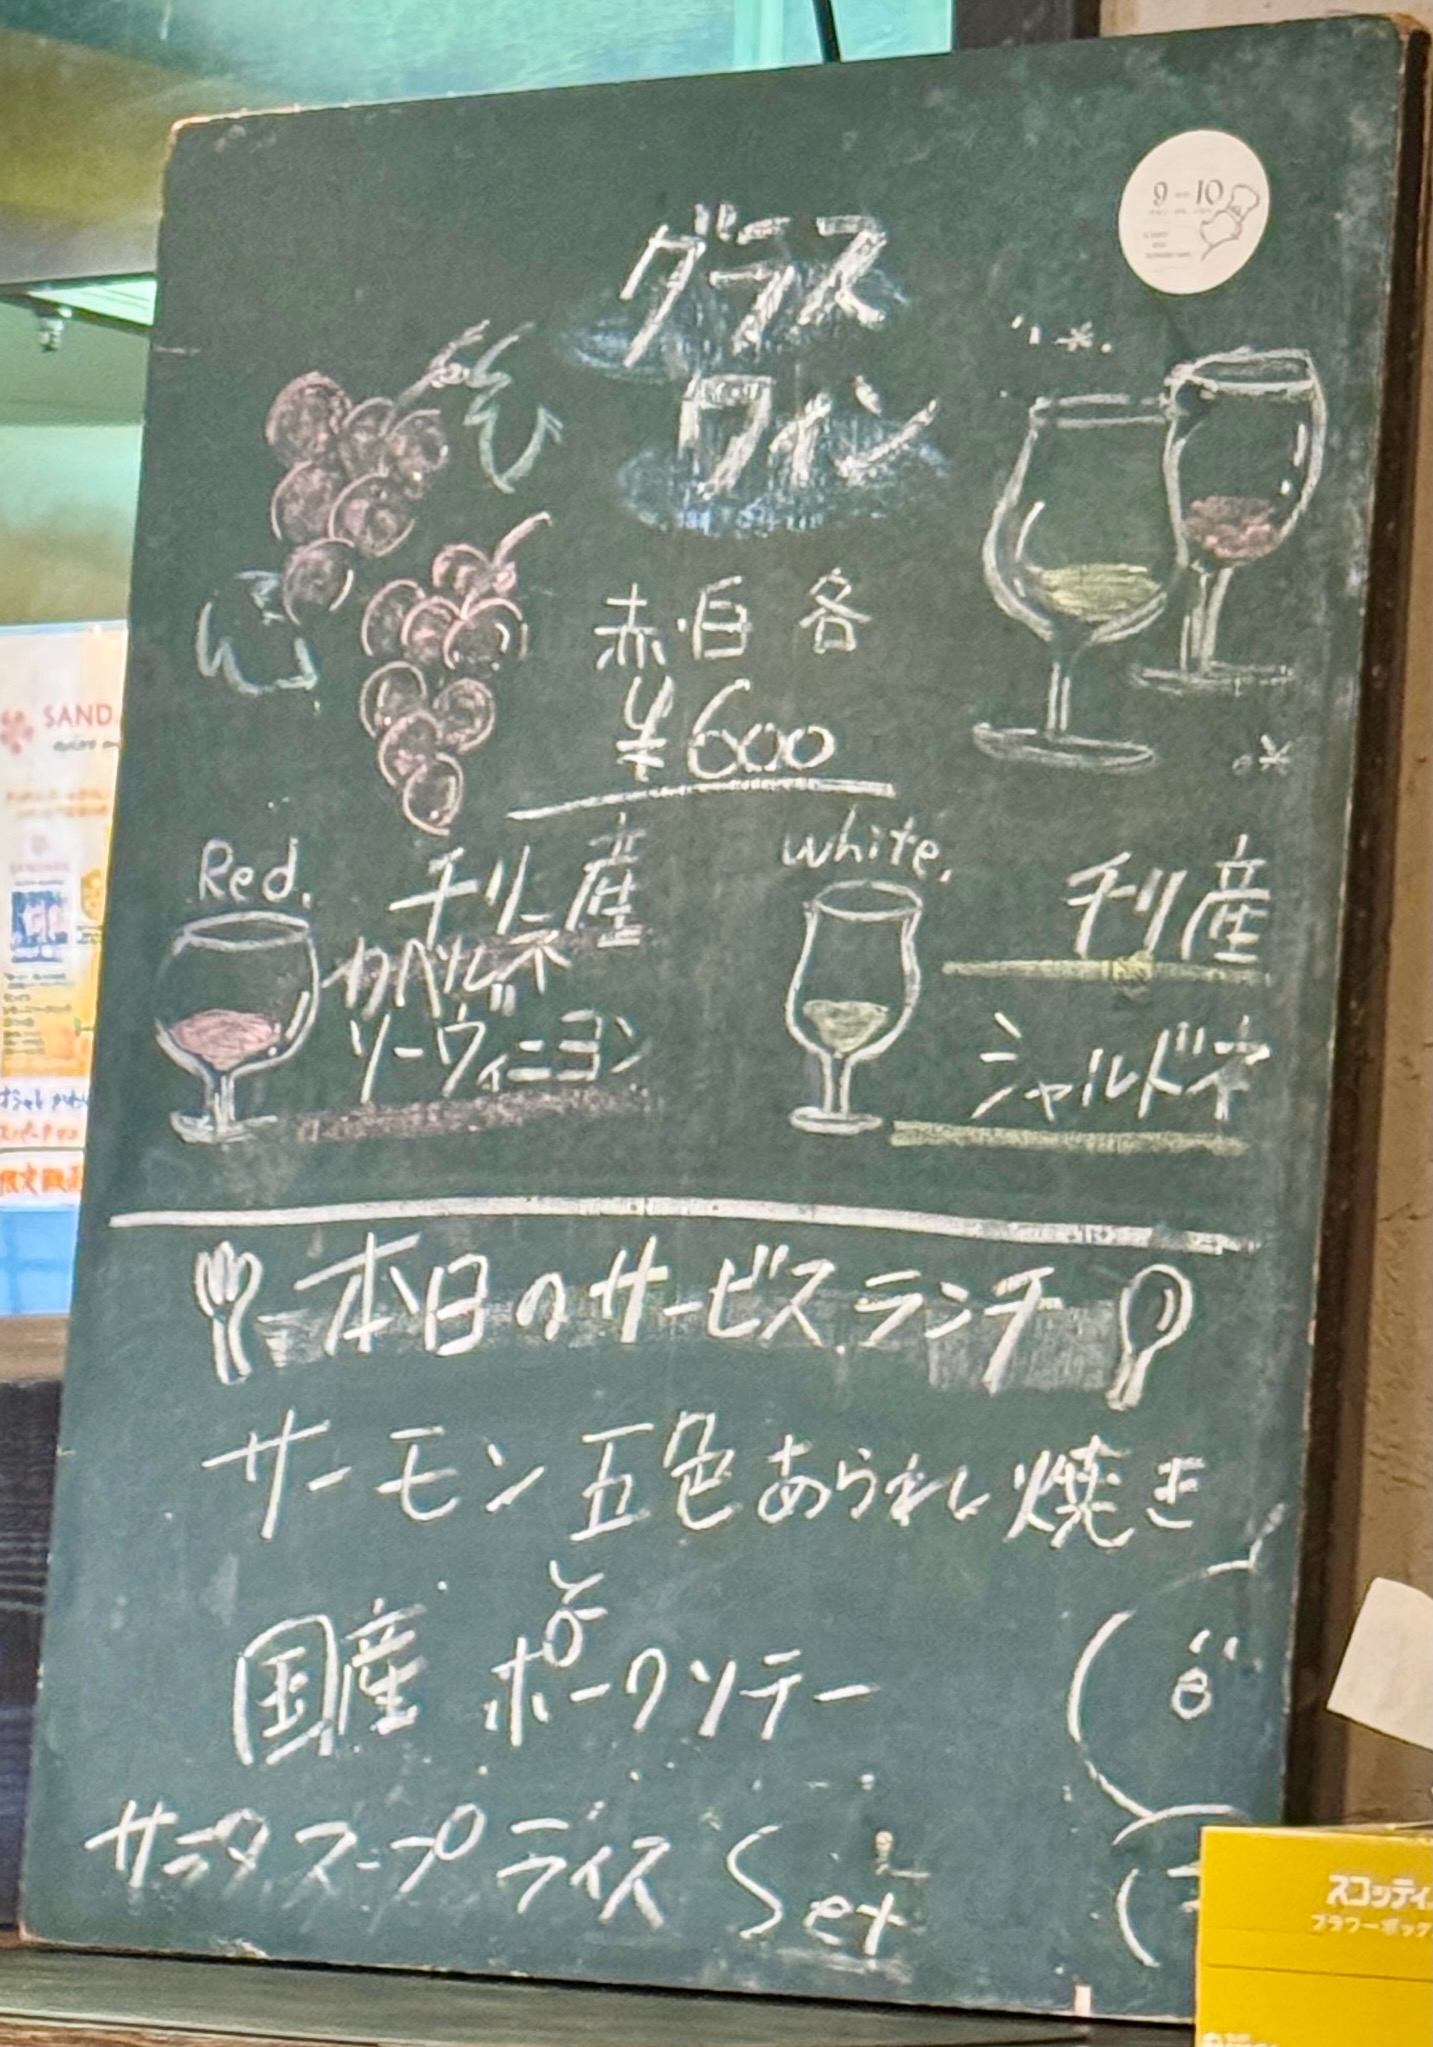 9 10
グラス
ワイン
赤・白 各
¥600
Red.
チリ産
カベルネ
ソーヴィニヨン
white.
チリ産
シャルドネ
本日のサービスランチ
サーモン五色あられ焼き
と
国産 ポークソテー
サラダ スープ ライス Set
SAND
限定販売
スコッティ
フラワーボック